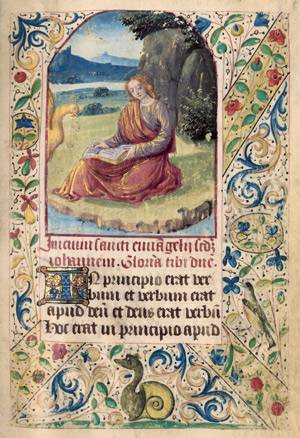 Inicium sancti euuāgelij scdʒ
iohannem. Gloria tibi dnē
IN principio erat ver
bum et verbum erat
apud deū et deus erat verbū
Hoc erat in principio apud